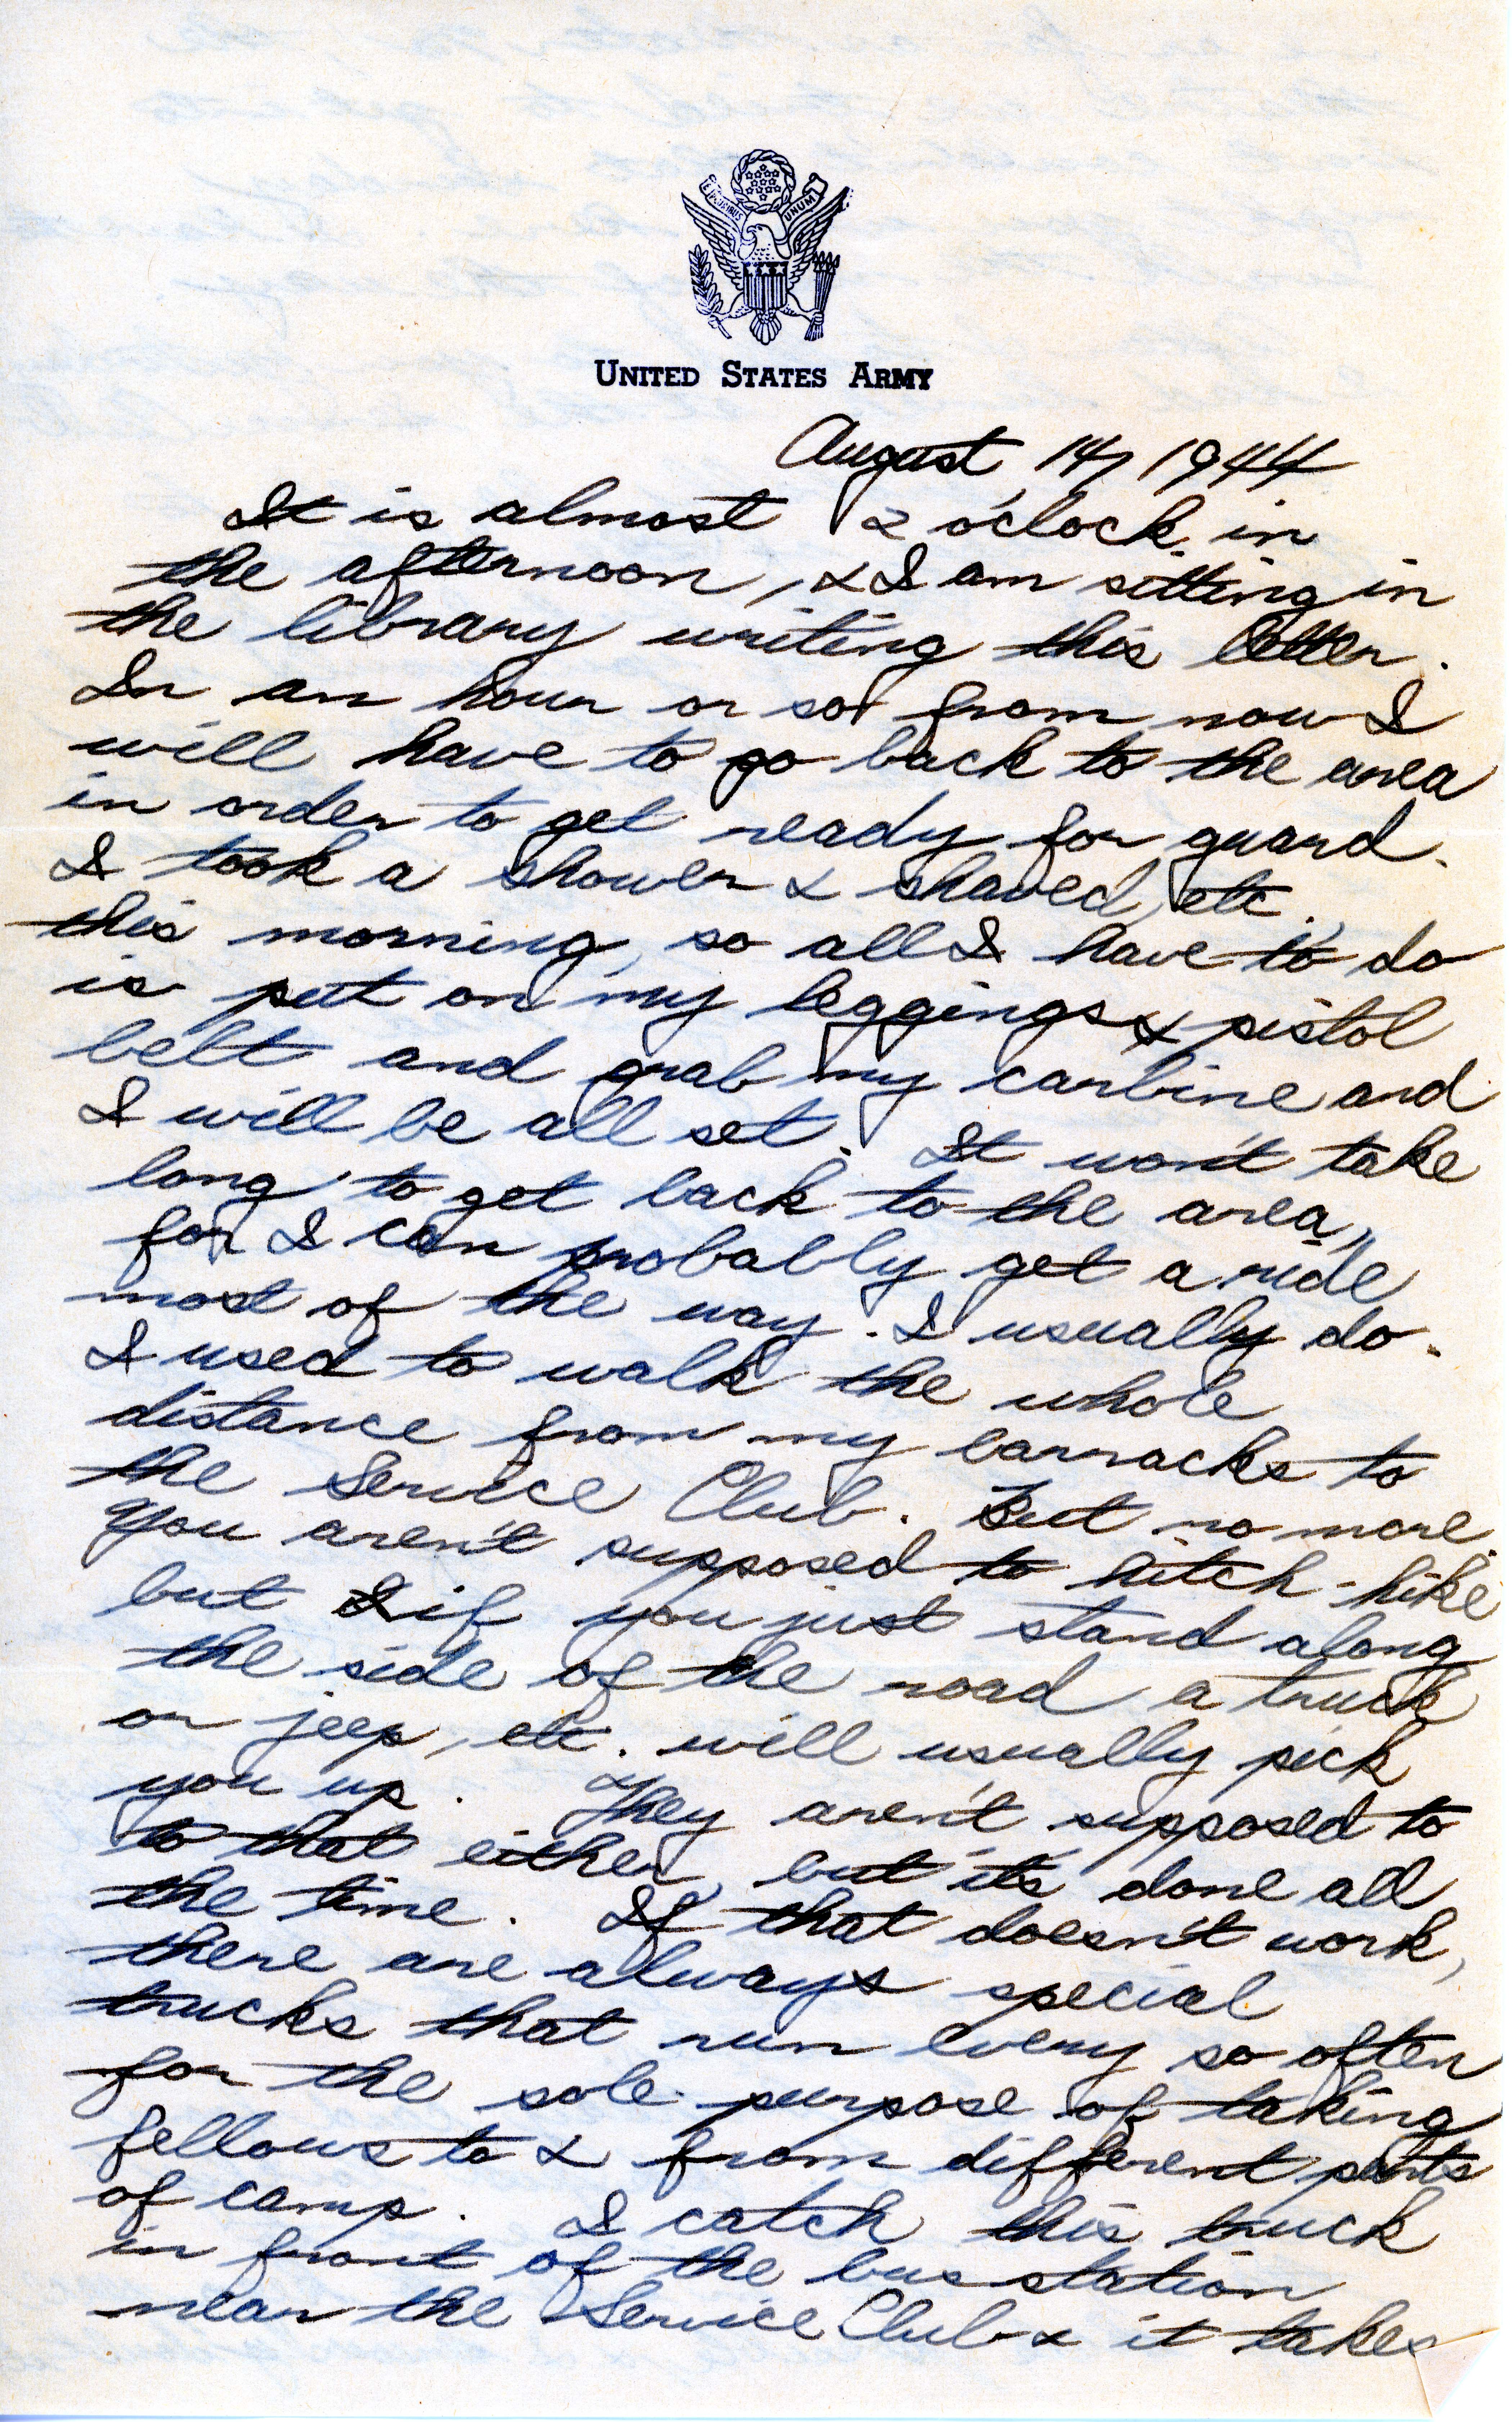 E PLURIBUS UNUM
UNITED STATES ARMY
August 14, 1944
It is almost 2 o'clock in
the afternoon, & I am sitting in
the library writing this letter.
In an hour or so from now I
will have to go back to the area
in order to get ready for guard.
I took a shower & shaved, etc.
this morning, so all I have to do
is put on my leggings & pistol
belt and grab my carbine and
I will be all set. It won't take
long to get back to the area,
for I can probably get a ride
most of the way. I usually do.
I used to walk the whole
distance from my barracks to
the Service Club. But no more.
You aren't supposed to hitch-hike
but I if you just stand along
the side of the road a truck
or jeep, etc. will usually pick
you up. They aren't supposed to
to that either, but it's done all
the time. If that doesn't work,
there are always special
trucks that run every so often
for the sole purpose of taking
fellows to & from different parts
of camp. I catch this truck
in front of the bus station
near the Service Club & it takes